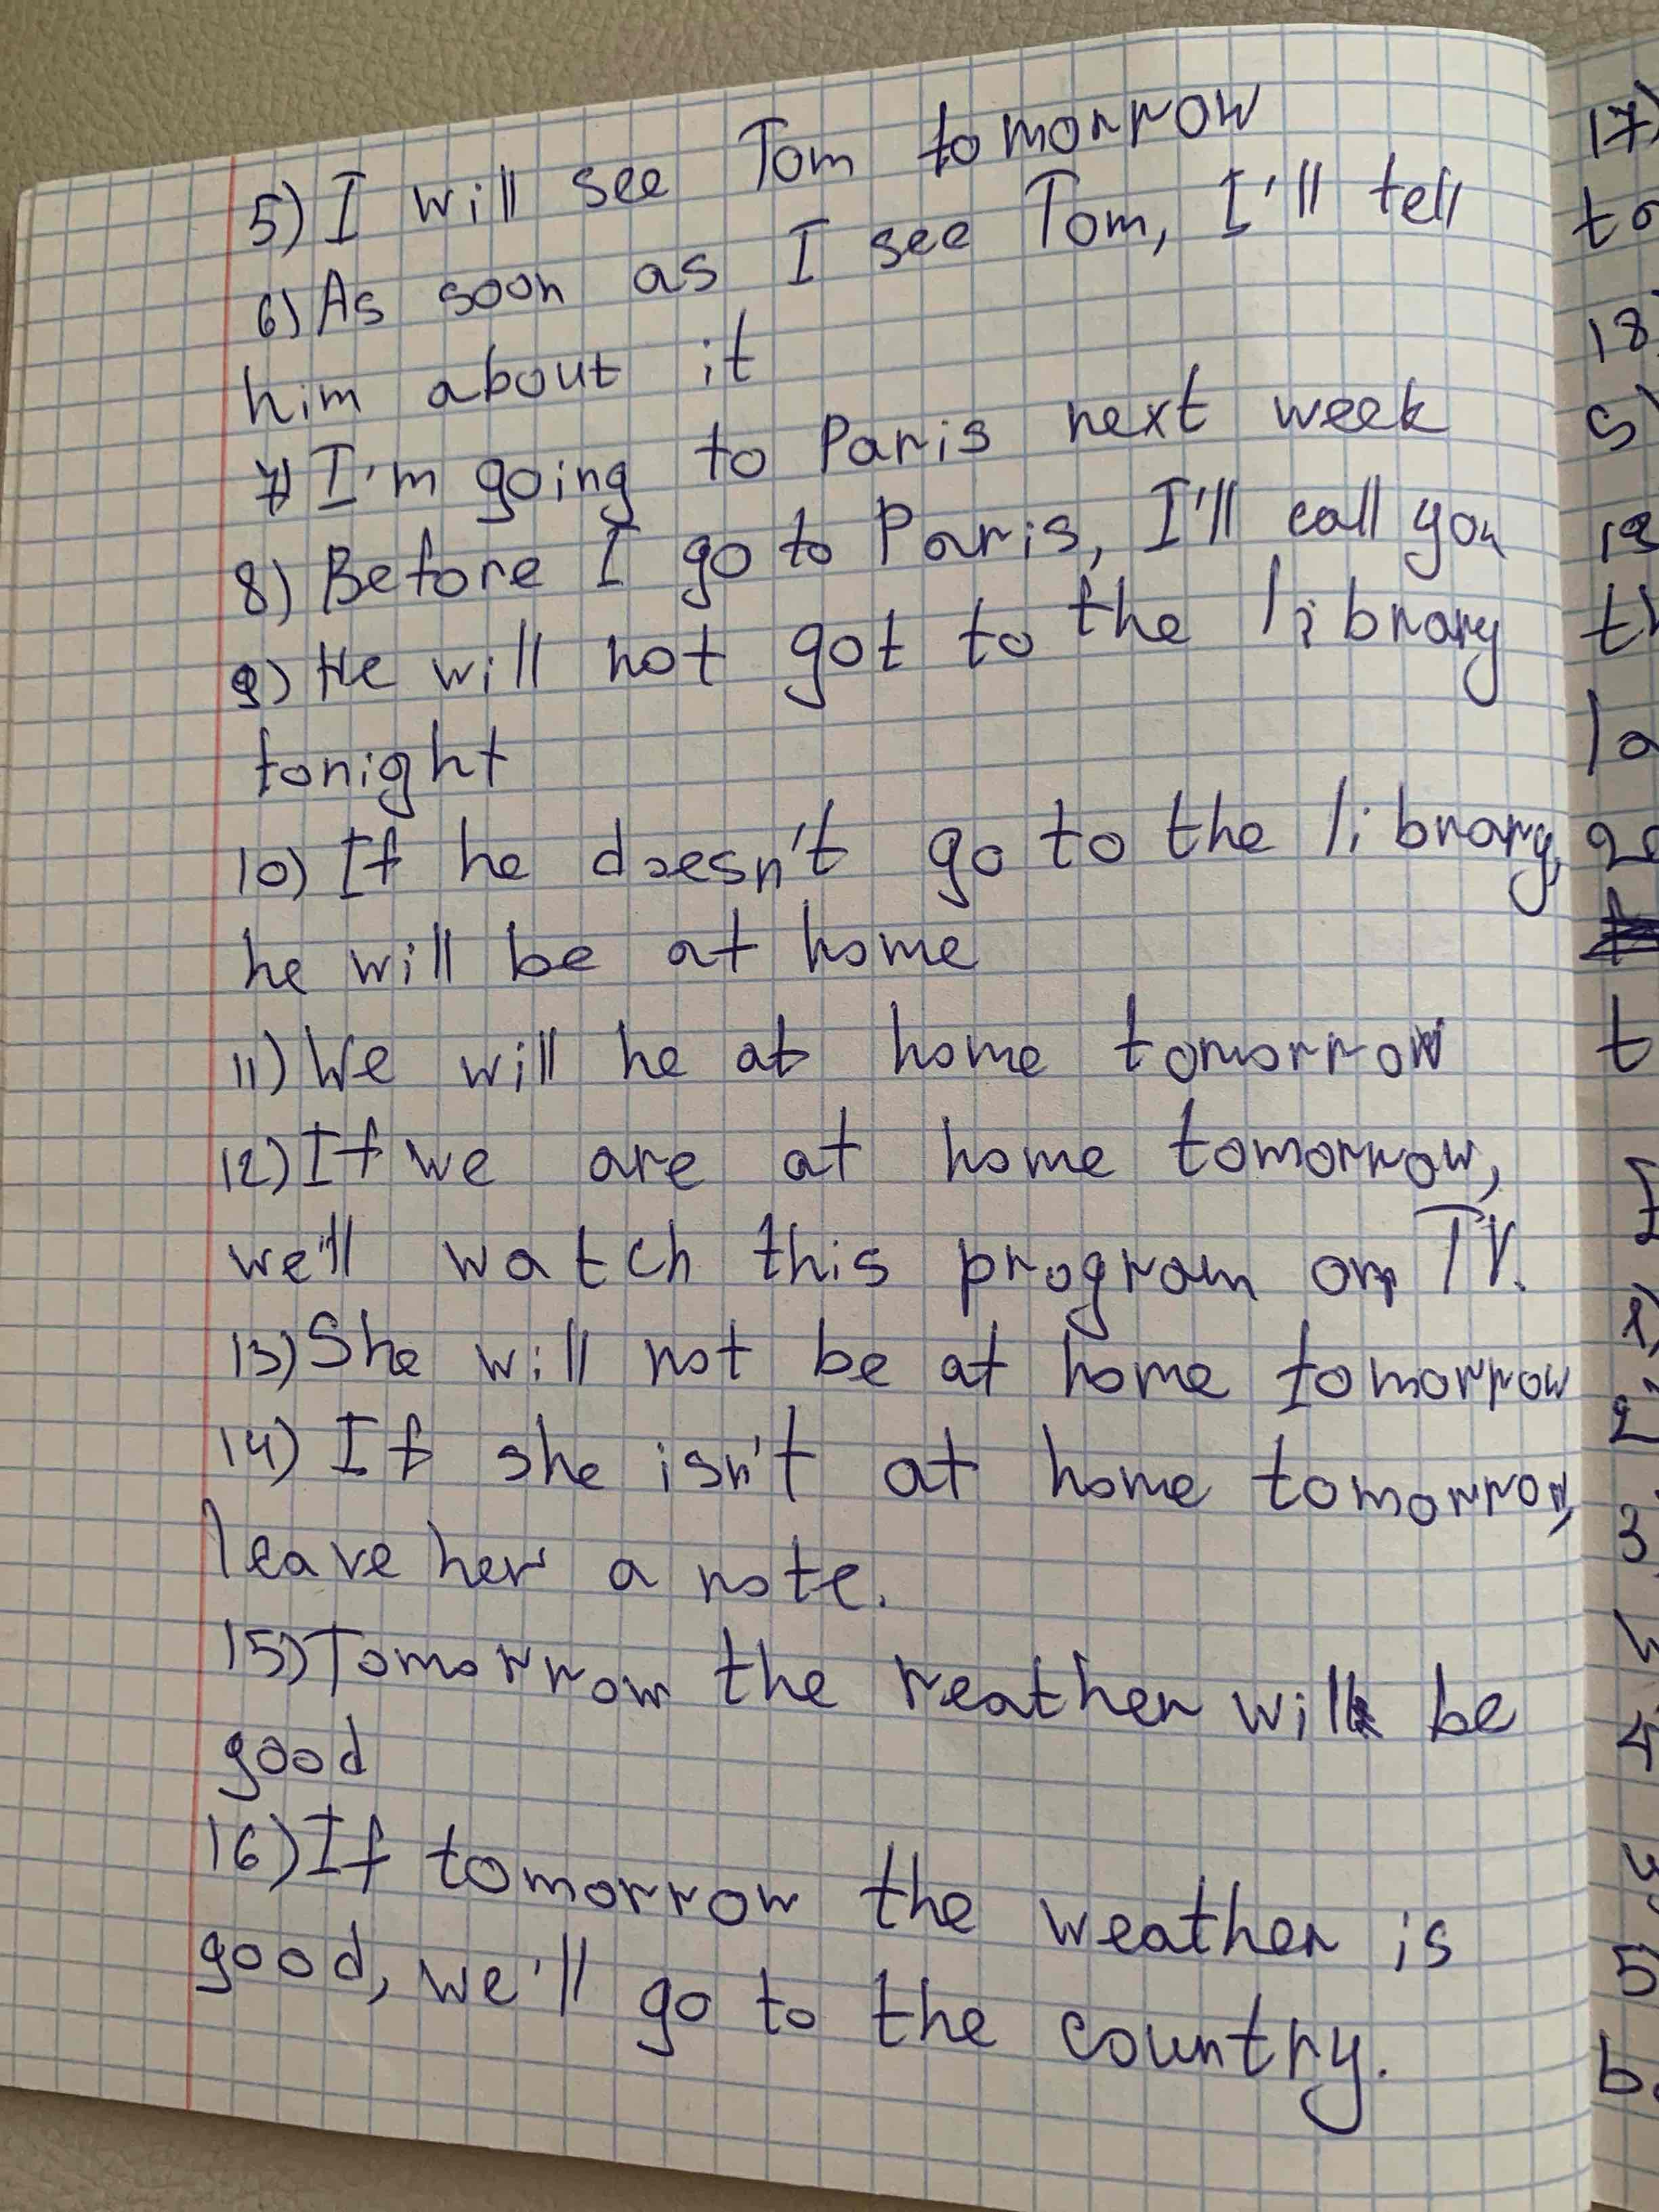 5) I will see Tom tomorrow
6) As soon as I see Tom, I'll tell
him about it
7) I'm going to Paris next week
8) Before I go to Paris, I'll call you
9) He will not got to the library
tonight
10) If he doesn't go to the library,
he will be at home
11) We will he at home tomorrow
12) If we are at home tomorrow,
we'll watch this program on TV.
13) She will not be at home tomorrow
14) If she isn't at home tomorrow,
leave her a note.
15) Tomorrow the reather will be
good
16) If tomorrow the weather is
good, we'll go to the country.
17)
to
18)
19
th
la
t
2
3
4
5
b